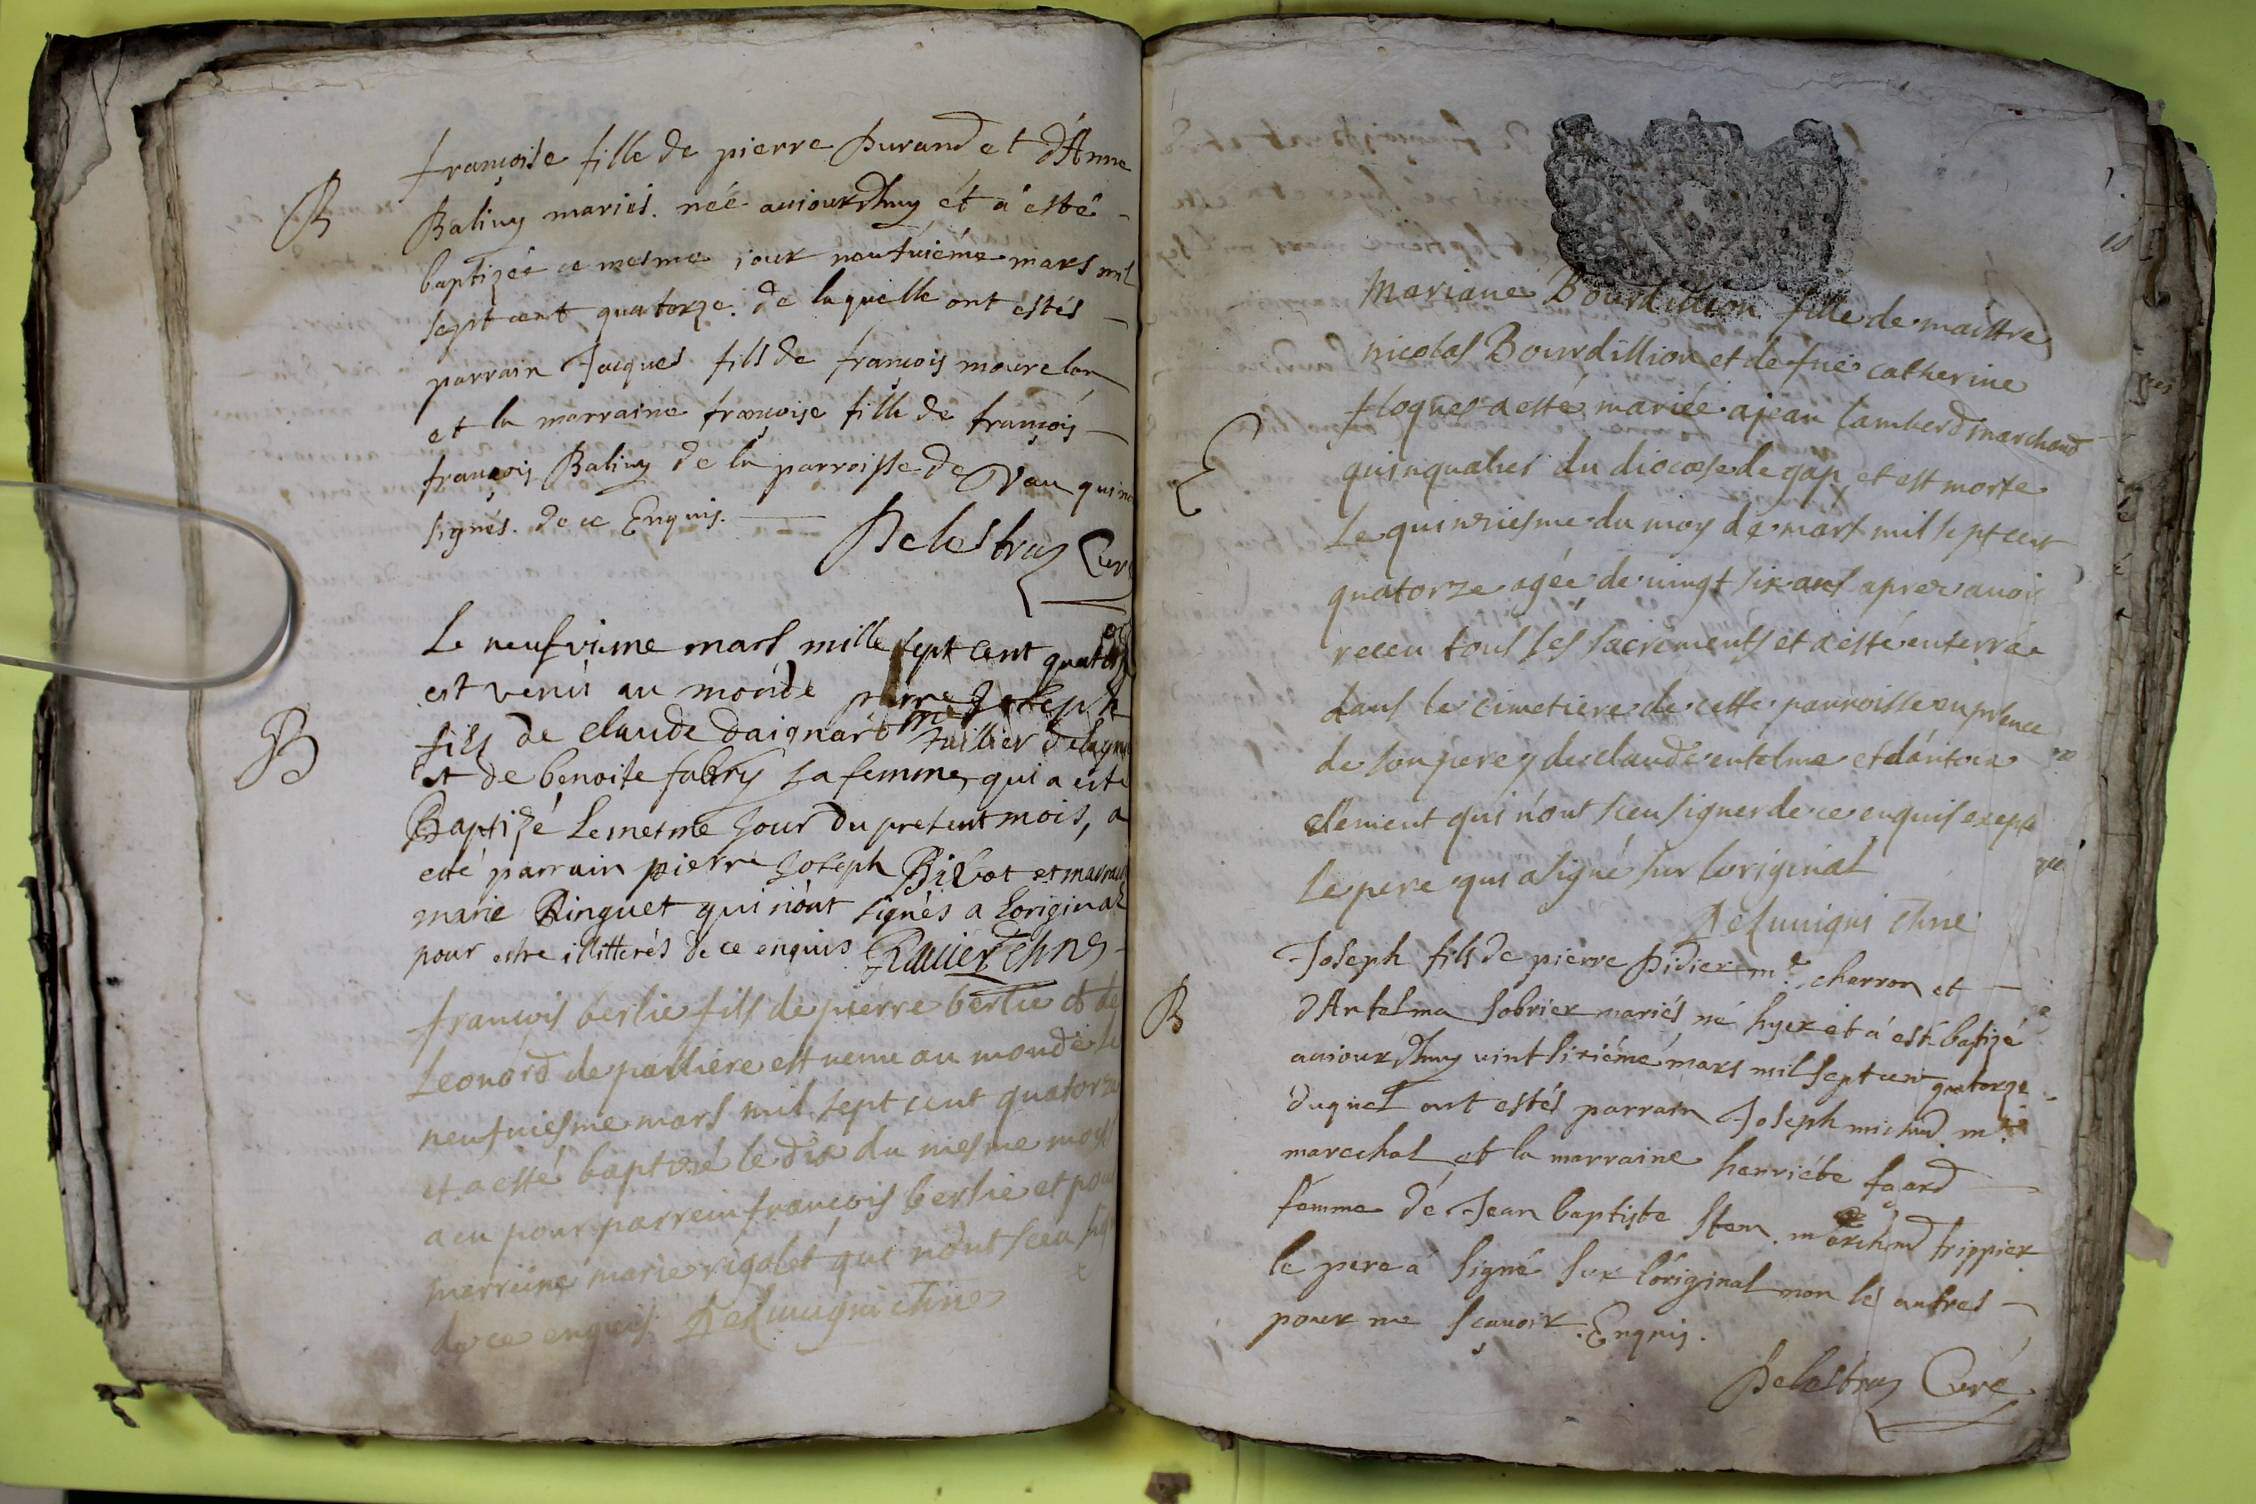 B
françoise fille de pierre Durand et d'Anne
Baliny mariés. née auiourdhuy ét à esté
baptizée ce mesme iour neufuiéme mars mil
sept cent quatorze. de laquelle ont estés
parrain Jacques fils de françois mourelon
et la marraine françoise fille de françois
françois Baliny de la parroisse de Vau qui n
signés. de ce Enquis.
Delestraz Cur
B
Le neufvieme mars mille sept cent quator
est venu au monde pierre Joseph
fils de claude daignard me taillier
et de benoite fabry sa femme, qui a esté
Baptizé le mesme jour du present mois, a
esté parrain pierre Joseph et marrai
marie Ringuet qui n'ont signés a l'original
pour estre illitterés de ce enquis Ravier
françois berlie fils de pierre berlie et de
Leonord de est venu au monde le
neufuiesme mars mil sept cent quatorze
et a esté baptisé le dix du mesme moys
a eu pour parrein françois berlie et pour
merreine marie rigolet qui n'ont sceu sig
de ce enquis
10
Mariane Bourdillion fille de maistre
nicolas Bourdillion et de fue catherine
floques a esté mariée a jean lamberd marchand
quinqualier du diocese de gap et est morte
Le quinziesme du moys de mars mil sept cent
quatorze agée de uingt six ans aprez auoir
receu tous ses sacrements et a esté enterrée
dans le cimetiere de cette parroisse en presence
de son pere de claude entelme et d'antoine
clement qui n'ont sceu signer de ce enquis exepte
Le pere qui a signé sur l'original
B
Joseph fils de pierre Didier me. charron et
d'Antelma Sobrier mariés né hyer et à esté baptizé
auiourdhuy uint sixiéme mars mil sept cent quatorze
duquel ont estés parrain Joseph michud me
marechal et la marraine henriéte
femme dé Jean baptiste marchand frippier
le pere à signé sur l'original non les autres
pour ne sçauoir. Enquis.
Delestraz Curé